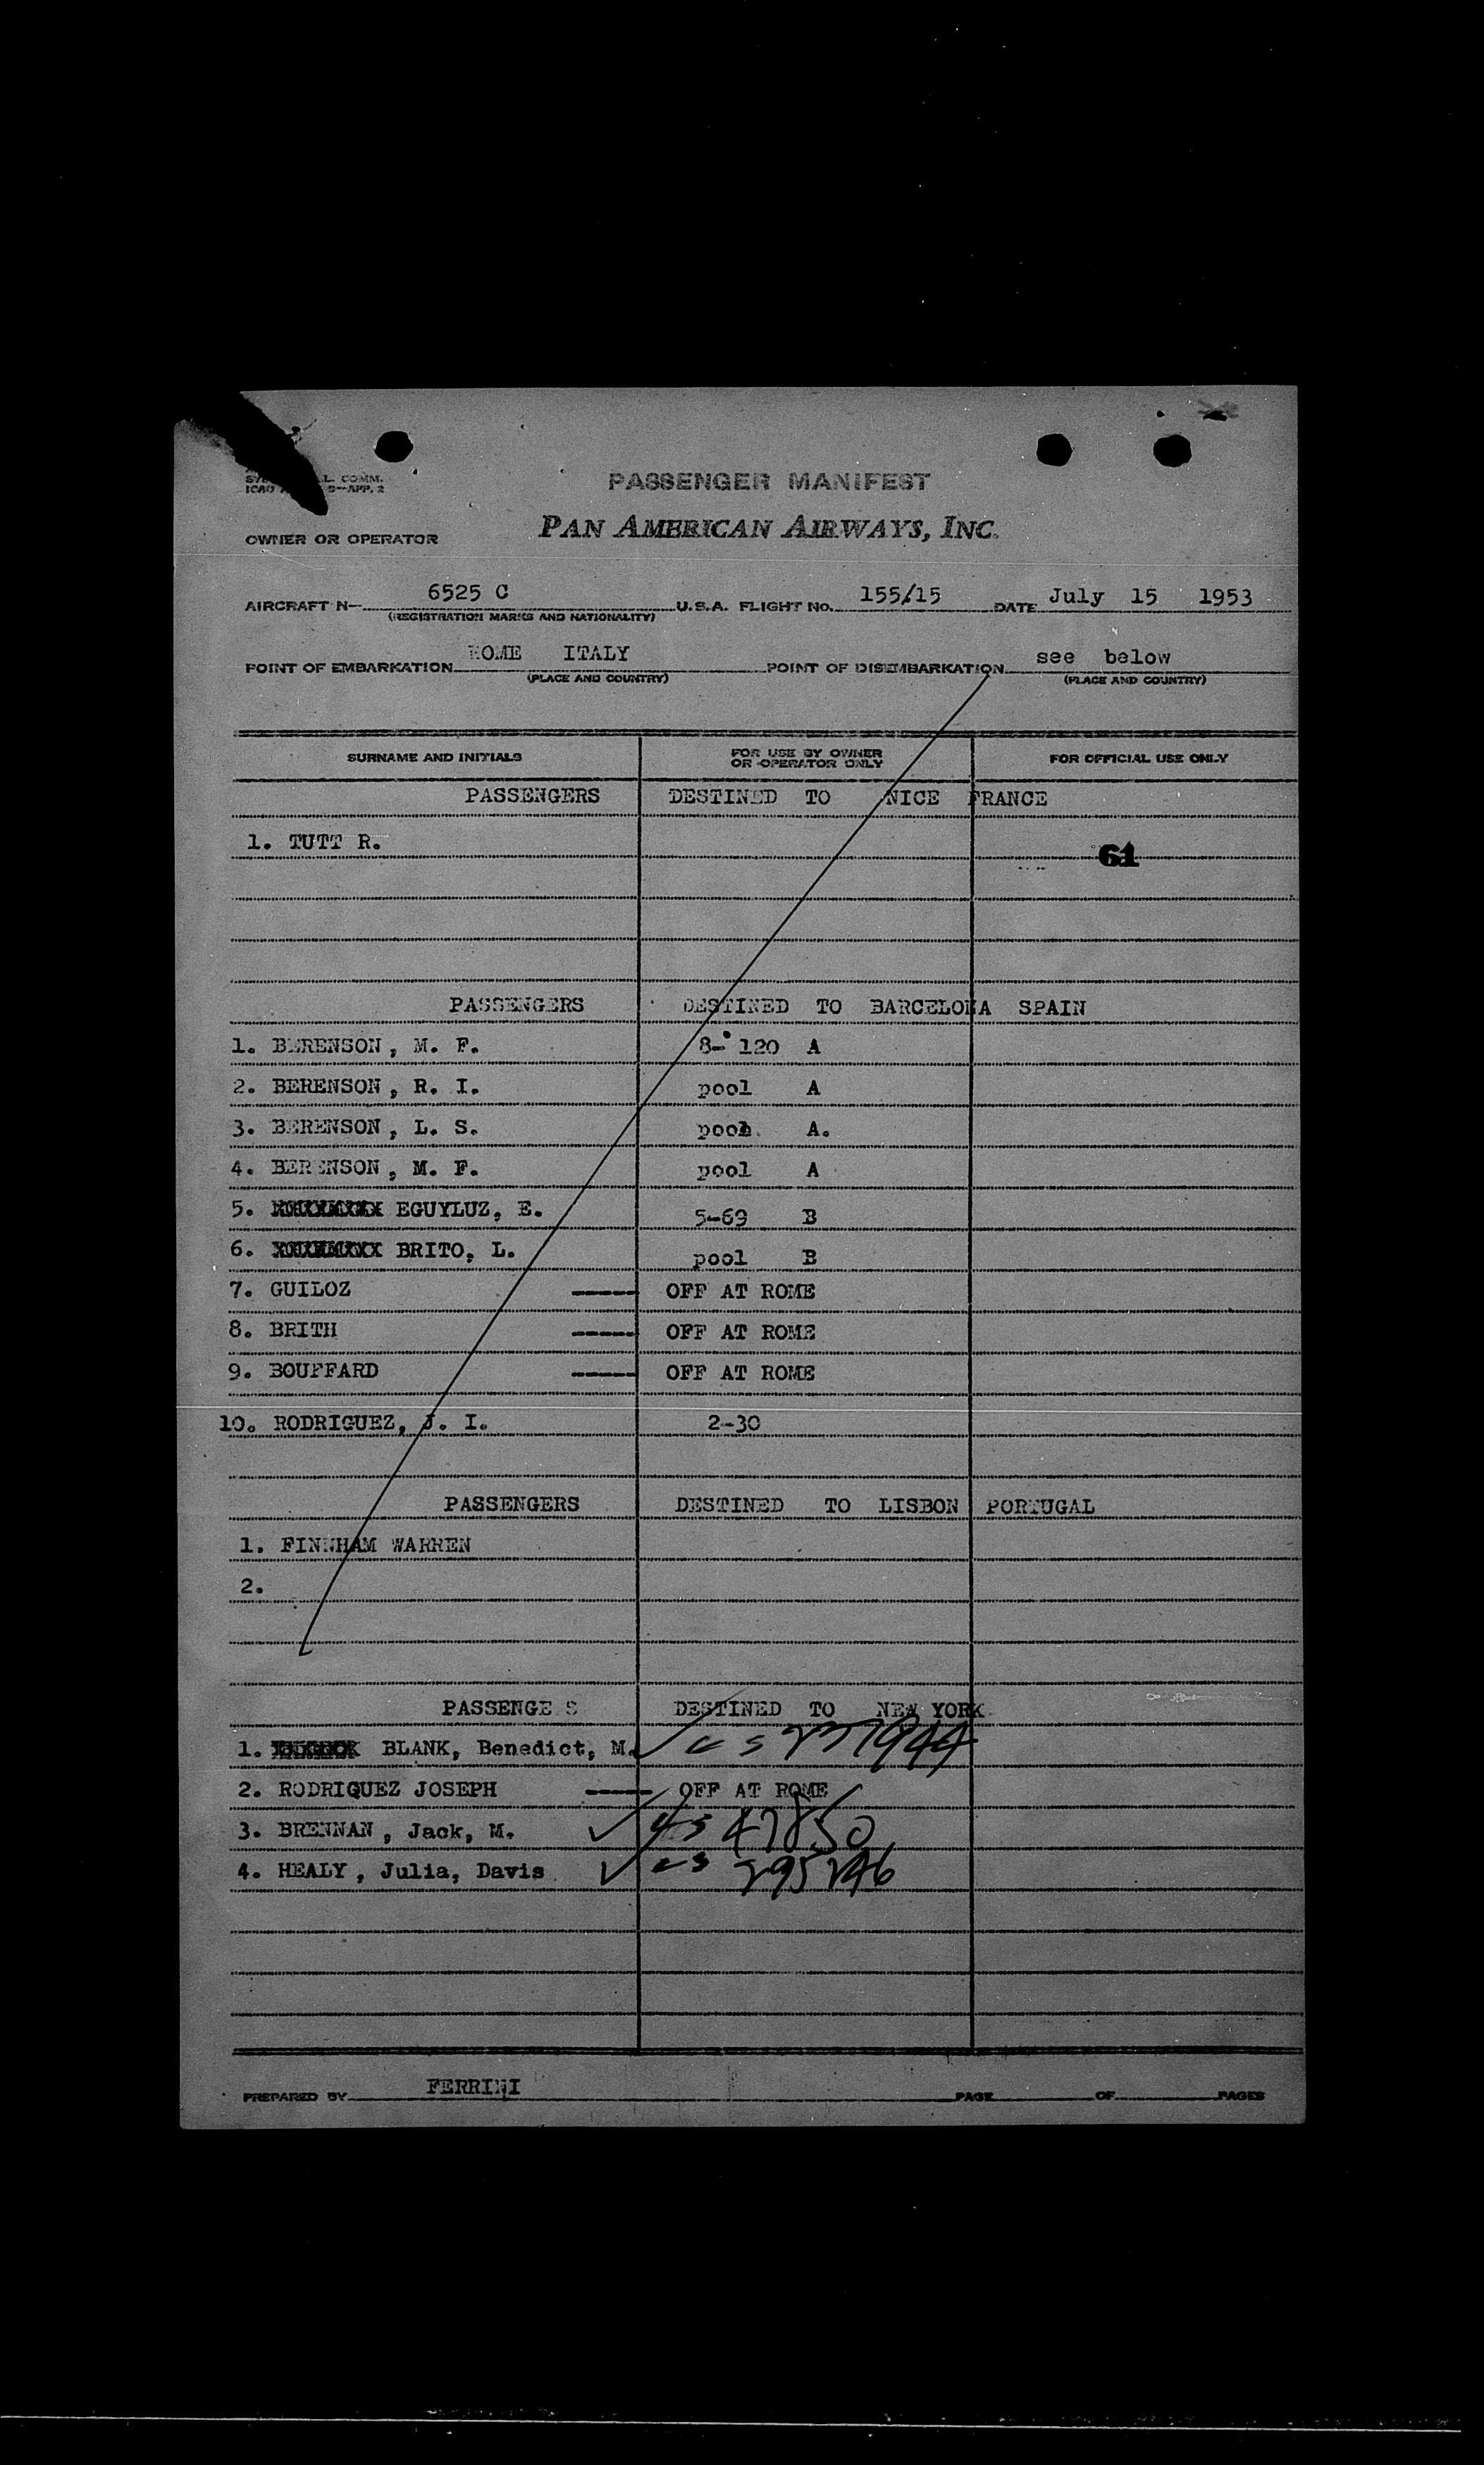 L. COMM.
ICAO 9—APP. 2
PASSENGER MANIFEST
OWNER OR OPERATOR PAN AMERICAN AIRWAYS, INC.
AIRCRAFT N— 6525 C U.S.A. FLIGHT NO. 155/15 DATE July 15 1953
(REGISTRATION MARKS AND NATIONALITY)
POINT OF EMBARKATION ROME ITALY POINT OF DISEMBARKATION see below
(PLACE AND COUNTRY) (PLACE AND COUNTRY)
SURNAME AND INITIALS FOR USE BY OWNER OR OPERATOR ONLY FOR OFFICIAL USE ONLY
PASSENGERS DESTINED TO NICE FRANCE
1. TUTT R.
61
PASSENGERS DESTINED TO BARCELONA SPAIN
1. BERENSON, M. F. 8- 120 A
2. BERENSON, R. I. pool A
3. BERENSON, L. S. pool A.
4. BERENSON, M. F. pool A
5. EGUYLUZ, E. 5-69 B
6. BRITO, L. pool B
7. GUILOZ ---- OFF AT ROME
8. BRITH ---- OFF AT ROME
9. BOUFFARD ---- OFF AT ROME
10. RODRIGUEZ, J. I. 2-30
PASSENGERS DESTINED TO LISBON PORTUGAL
1. FINNHAM WARREN
2.
PASSENGE S DESTINED TO NEW YORK
1. BLANK, Benedict, M.
2. RODRIQUEZ JOSEPH ---- OFF AT ROME
3. BRENNAN, Jack, M. 47850
4. HEALY, Julia, Davis 295246
PREPARED BY FERRINI PAGE OF PAGES